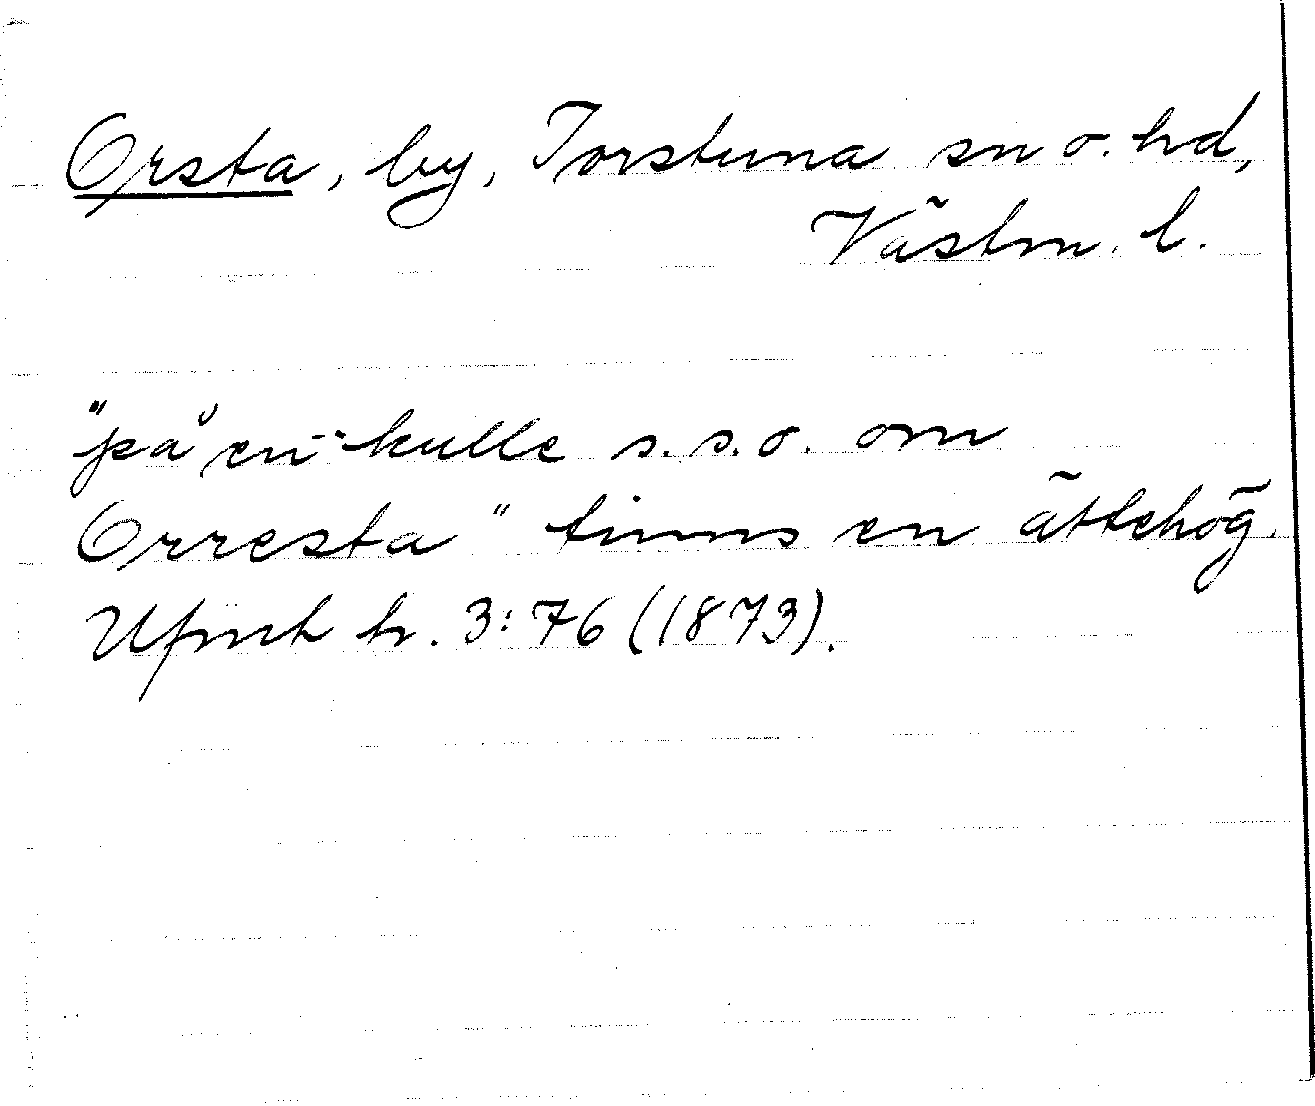 Orsta, by, Torstuna sn o. hd,
Västm. l.
"på en kulle s.s.o. om
Orresta" finns en ättehög.
Ufmh h. 3:76 (1873).